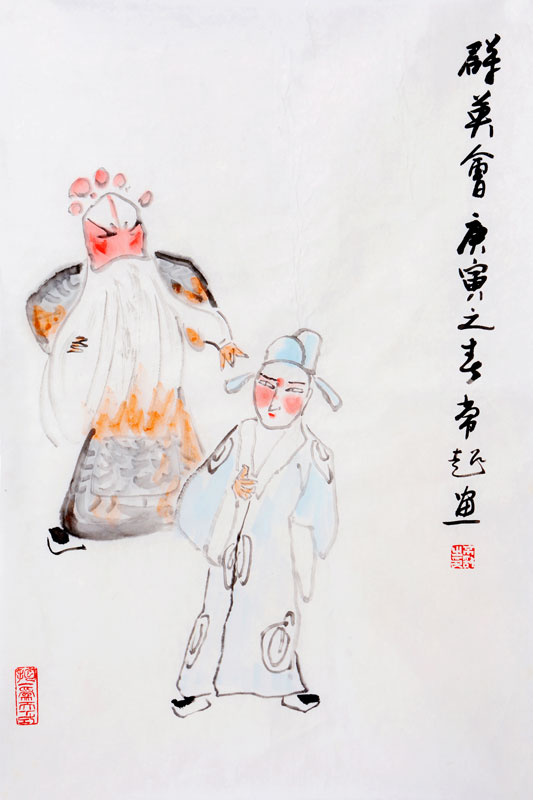 群英會庚寅之春常起画